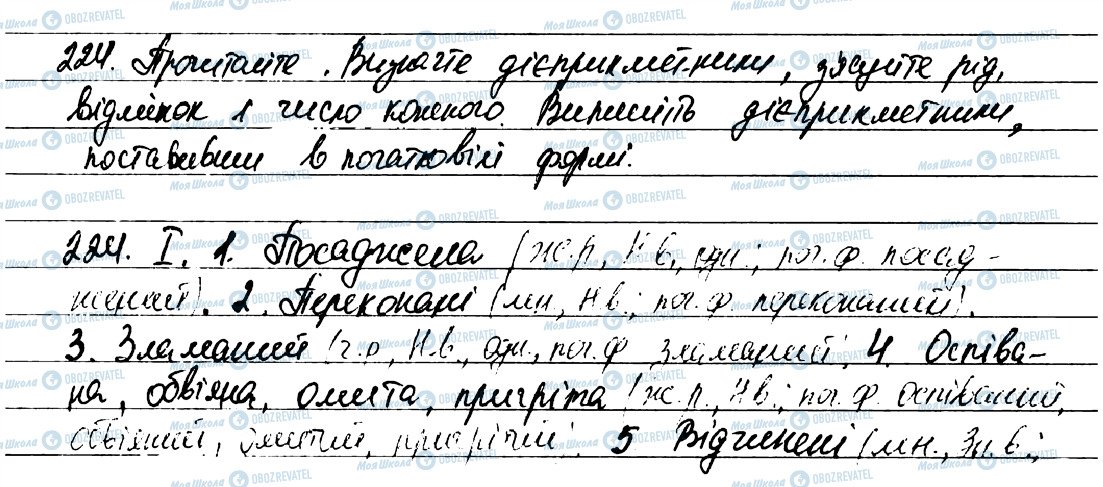 224. Прочитайте. Визначте дієприкметники, з'ясуйте рід,
відмінок і число кожного. Випишіть дієприкметники,
поставивши в початковій формі.
224. I. 1. Посаджена (ж.р., Н.в., одн.; поч.ф. посад-
жений). 2. Переконані (мн., Н.в.; поч.ф. переконаний).
3. Зламаний (ч.р., Н.в., одн., поч.ф. зламаний). 4. Оспіва-
на, обвіяна, омита, пригріта (ж.р., Н.в.; поч.ф. оспіваний,
обвіяний, омитий, пригрітий). 5 Відчинені (мн., Зн.в.;